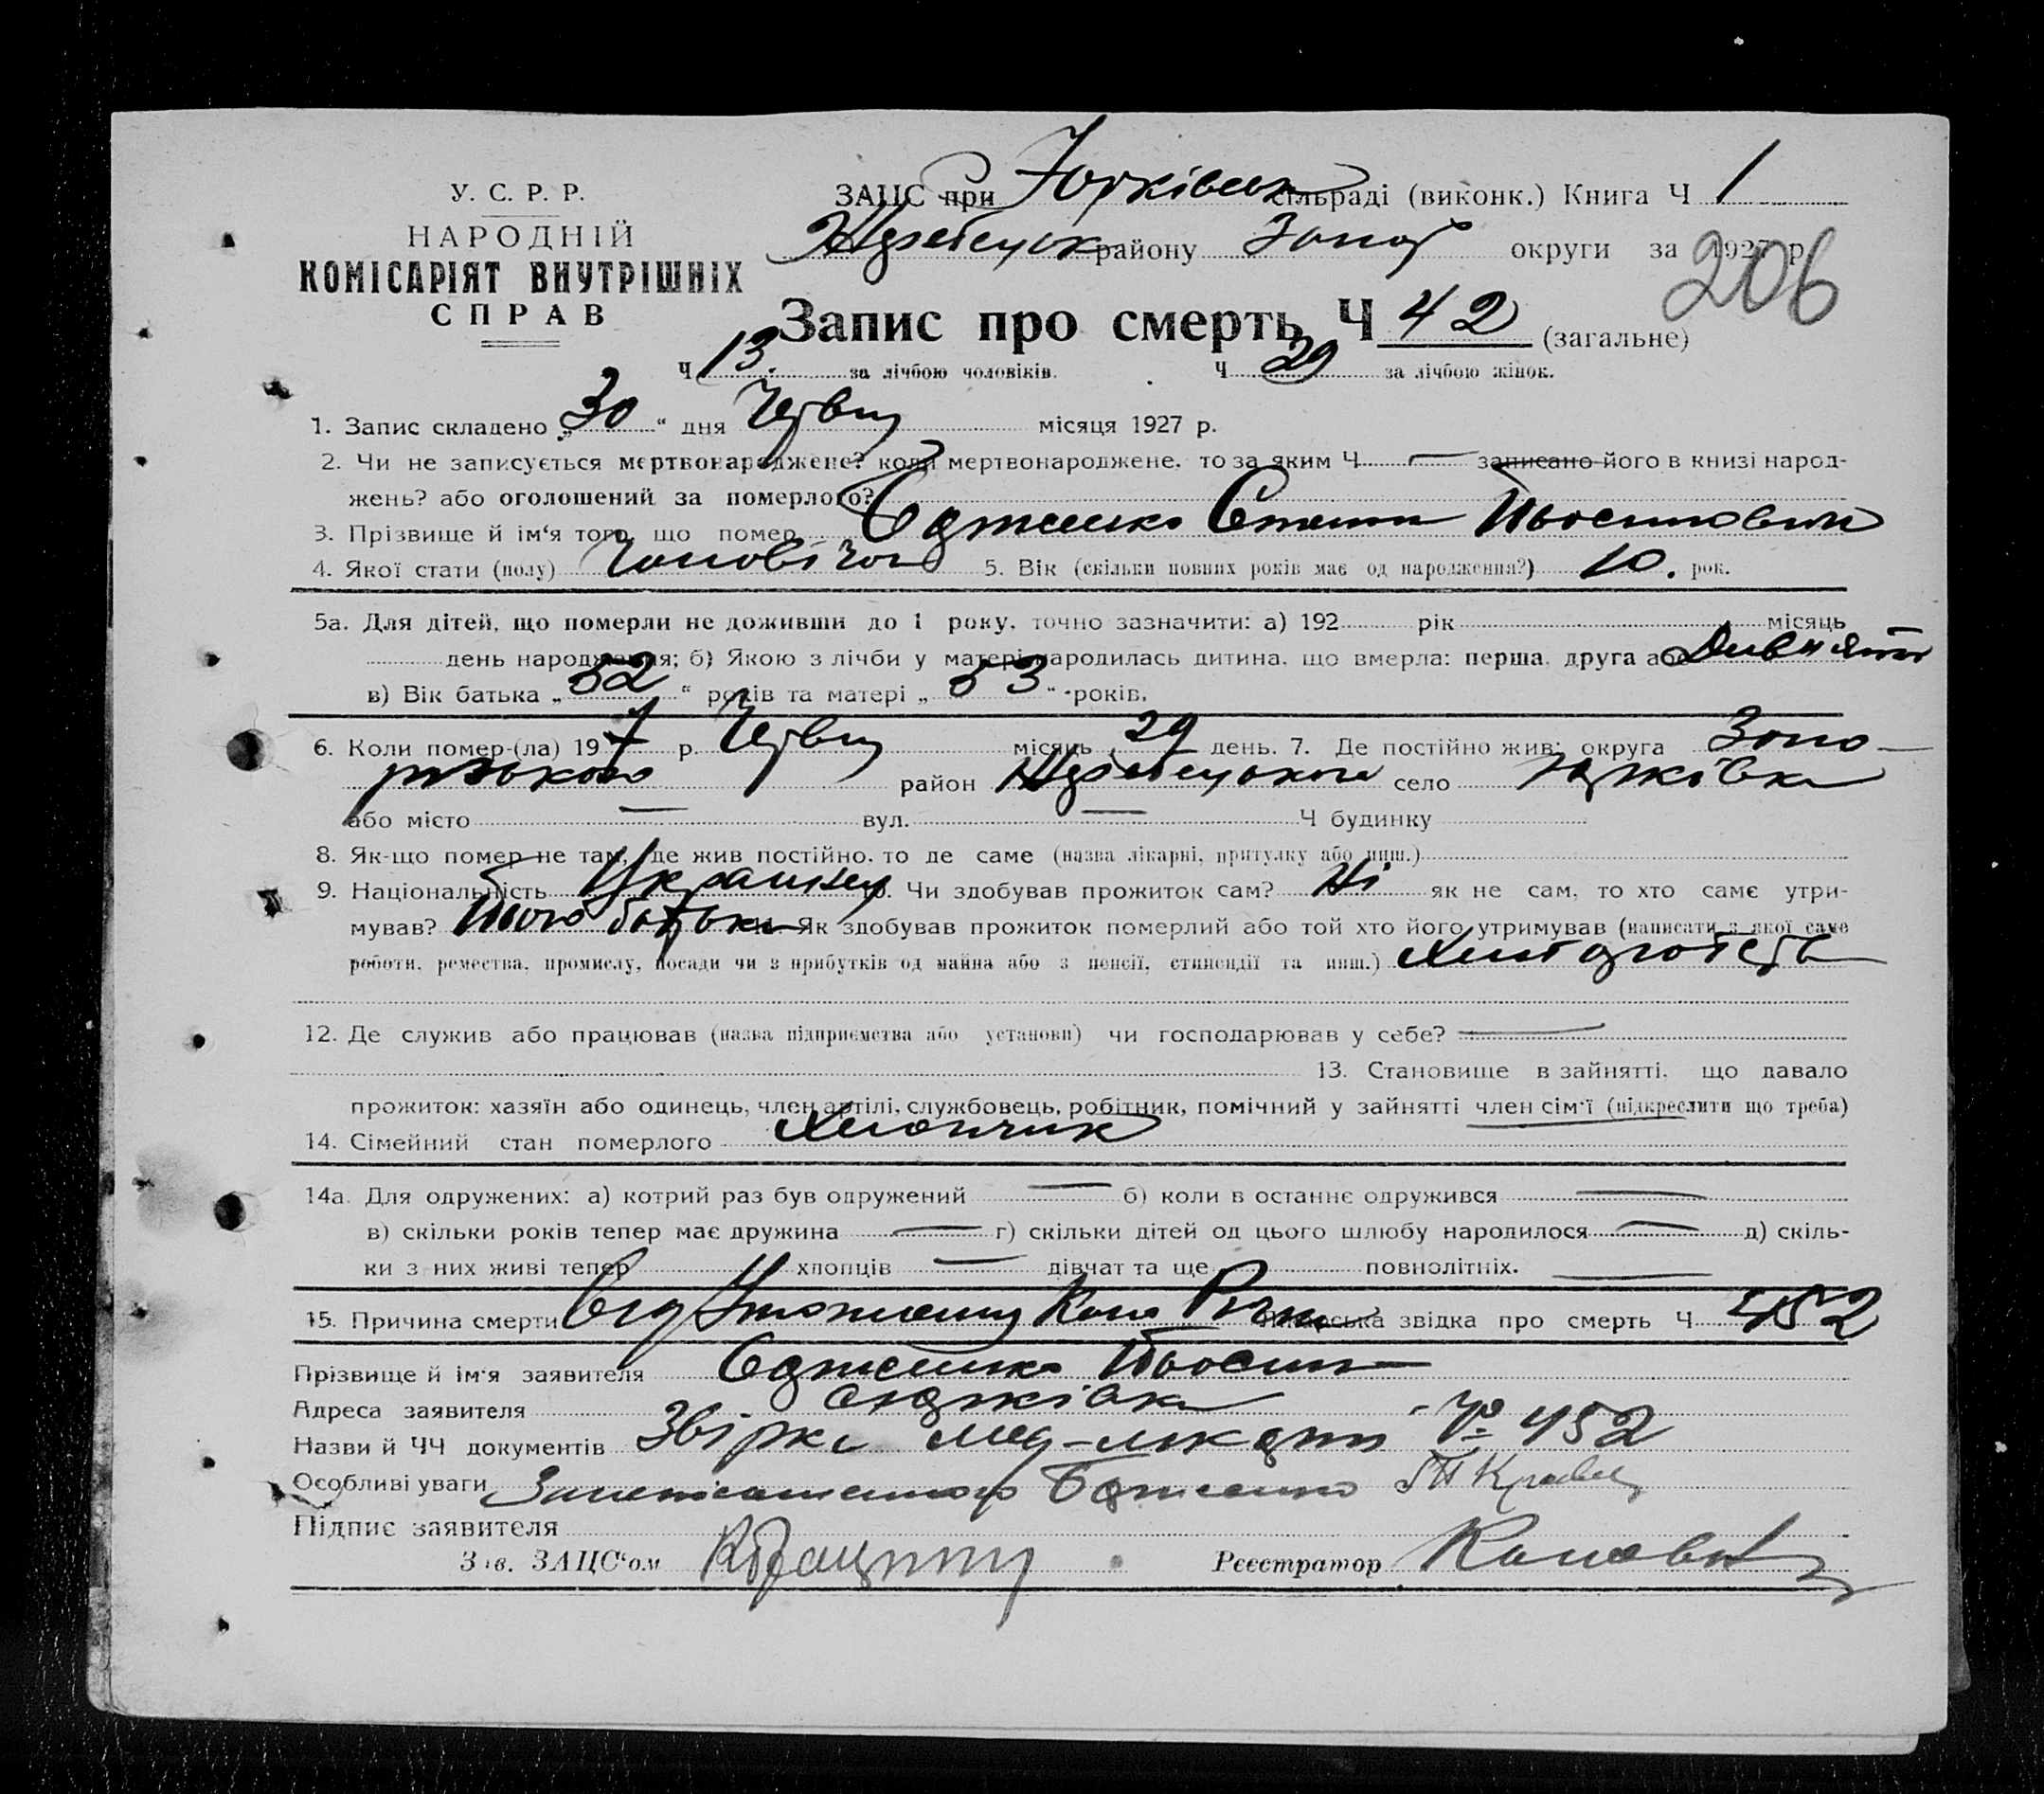 У. С. Р. Р.
НАРОДНІЙ
КОМІСАРІЯТ ВНУТРІШНІХ
СПРАВ
ЗАЦС при Юрківськ сільраді (виконк.) Книга Ч 1
району Запор округи за 1927 р.
206
Запис про смерть Ч 42 (загальне)
Ч 13. за лічбою чоловіків. Ч 29 за лічбою жінок.
1. Запис складено „30“ дня Червц місяця 1927 р.
2. Чи не записується мертвонароджене? коли мертвонароджене, то за яким Ч — записано його в книзі народ-
жень? або оголошений за померлого?
3. Прізвище й ім‘я того, що помер Степан Йосипович
4. Якої стати (полу) Чоловічої 5. Вік (скільки повних років має од народження?) 10. рок.
5а. Для дітей, що померли не доживши до 1 року, точно зазначити: а) 192 рік місяць
день народження; б) Якою з лічби у матері народилась дитина, що вмерла: перша, друга або
в) Вік батька „52“ років та матері „53“ років.
6. Коли помер-(ла) 197 р. Червц місяць 29 день. 7. Де постійно жив: округа Запо-
різького район Жеребецького село Юрківка
або місто — вул. — Ч будинку
8. Як-що помер не там, де жив постійно, то де саме (назва лікарні, притулку або инш.)
9. Національність Українец 10. Чи здобував прожиток сам? Ні як не сам, то хто саме утри-
мував? Його батько 11. Як здобував прожиток померлий або той хто його утримував (написати з якої саме
роботи, ремества, промислу, посади чи з прибутків од майна або з пенсії, стипендії та инш.) Хліборобств
12. Де служив або працював (назва підприємства або установи) чи господарював у себе? —
13. Становище в зайнятті, що давало
прожиток: хазяїн або одинець, член артілі, службовець, робітник, помічний у зайнятті член сім‘ї (підкреслити що треба)
14. Сімейний стан померлого Хлопчик
14а. Для одружених: а) котрий раз був одружений — б) коли в останнє одружився —
в) скільки років тепер має дружина — г) скільки дітей од цього шлюбу народилося — д) скіль-
ки з них живі тепер хлопців — дівчат та ще повнолітніх. —
15. Причина смерти Лікарська звідка про смерть Ч 452
Прізвище й ім‘я заявителя Йосип
Адреса заявителя с Юрківка
Назви й ЧЧ документів № 452
Особливі уваги
Підпис заявителя
Зав. ЗАЦС‘ом Реєстратор